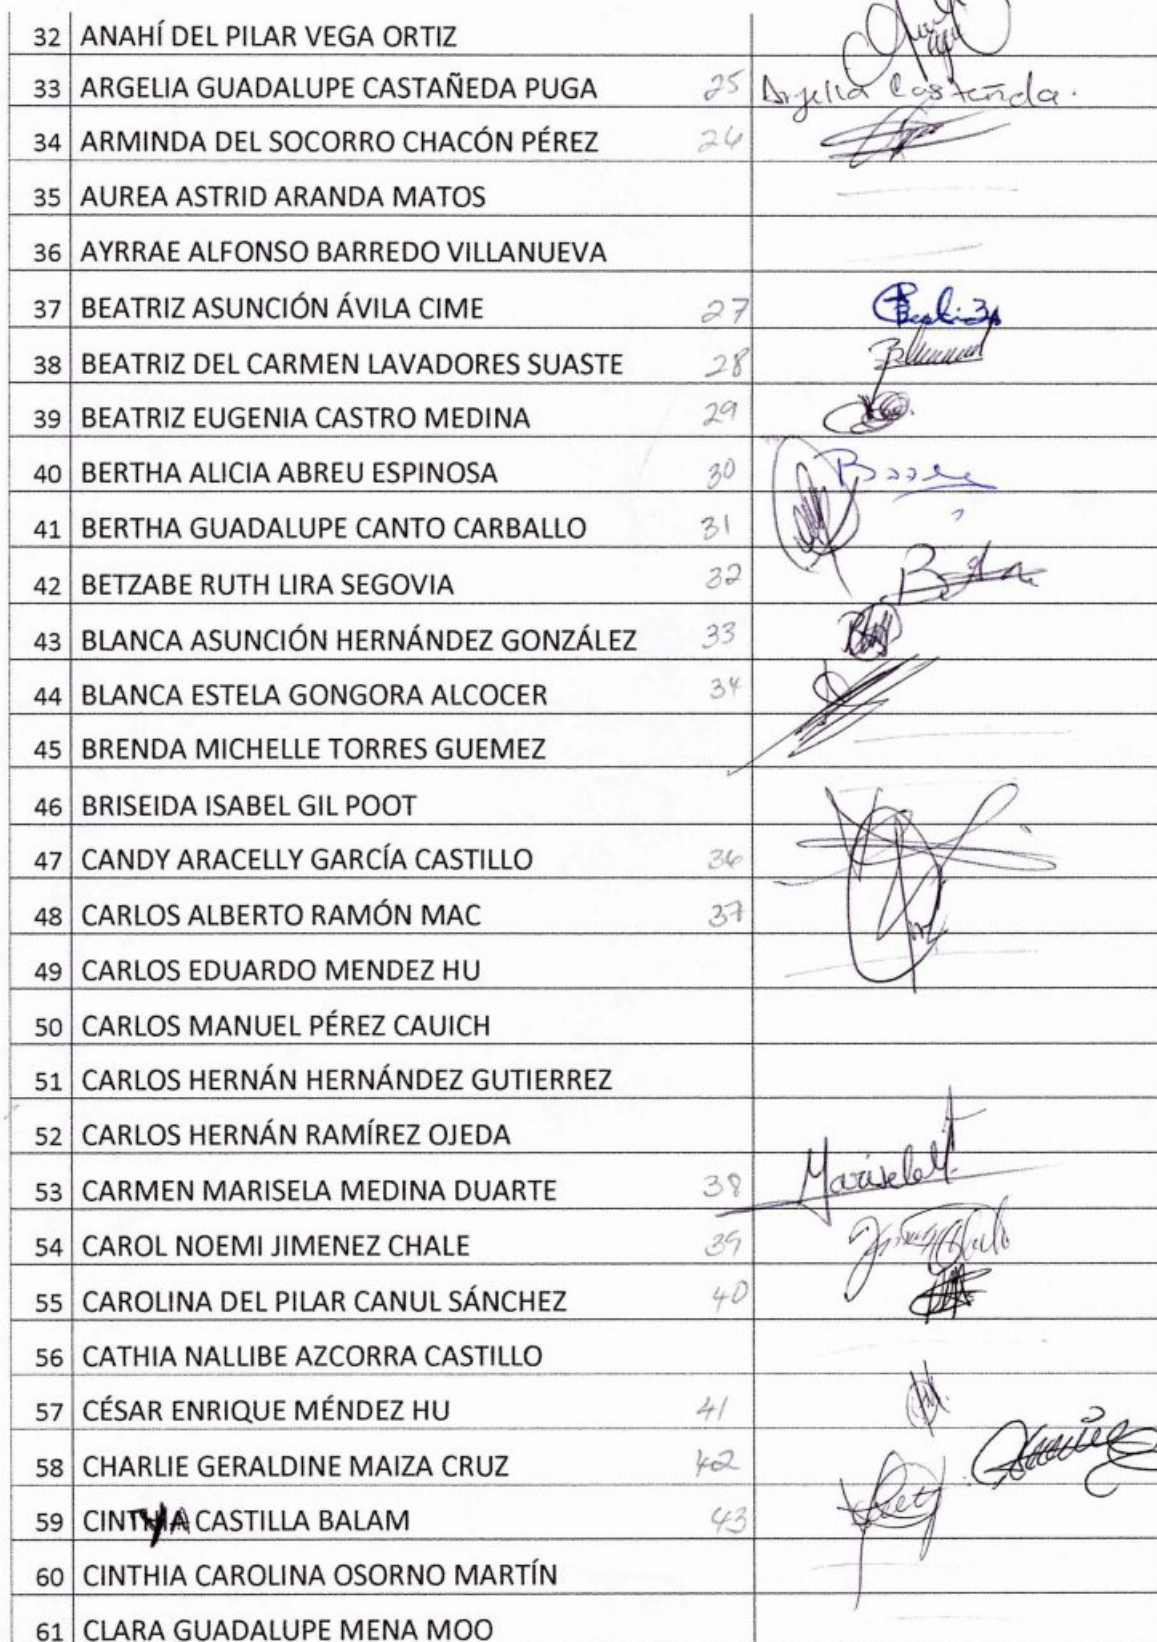 32 ANAHÍ DEL PILAR VEGA ORTIZ
33 ARGELIA GUADALUPE CASTAÑEDA PUGA 25 Argelia Castañeda.
34 ARMINDA DEL SOCORRO CHACÓN PÉREZ 26
35 AUREA ASTRID ARANDA MATOS
36 AYRRAE ALFONSO BARREDO VILLANUEVA
37 BEATRIZ ASUNCIÓN ÁVILA CIME 27
38 BEATRIZ DEL CARMEN LAVADORES SUASTE 28
39 BEATRIZ EUGENIA CASTRO MEDINA 29
40 BERTHA ALICIA ABREU ESPINOSA 30
41 BERTHA GUADALUPE CANTO CARBALLO 31
42 BETZABE RUTH LIRA SEGOVIA 32
43 BLANCA ASUNCIÓN HERNÁNDEZ GONZÁLEZ 33
44 BLANCA ESTELA GONGORA ALCOCER 34
45 BRENDA MICHELLE TORRES GUEMEZ
46 BRISEIDA ISABEL GIL POOT
47 CANDY ARACELLY GARCÍA CASTILLO 36
48 CARLOS ALBERTO RAMÓN MAC 37
49 CARLOS EDUARDO MENDEZ HU
50 CARLOS MANUEL PÉREZ CAUICH
51 CARLOS HERNÁN HERNÁNDEZ GUTIERREZ
52 CARLOS HERNÁN RAMÍREZ OJEDA
53 CARMEN MARISELA MEDINA DUARTE 38
54 CAROL NOEMI JIMENEZ CHALE 39
55 CAROLINA DEL PILAR CANUL SÁNCHEZ 40
56 CATHIA NALLIBE AZCORRA CASTILLO
57 CÉSAR ENRIQUE MÉNDEZ HU 41
58 CHARLIE GERALDINE MAIZA CRUZ 42
59 CINTYA CASTILLA BALAM 43
60 CINTHIA CAROLINA OSORNO MARTÍN
61 CLARA GUADALUPE MENA MOO